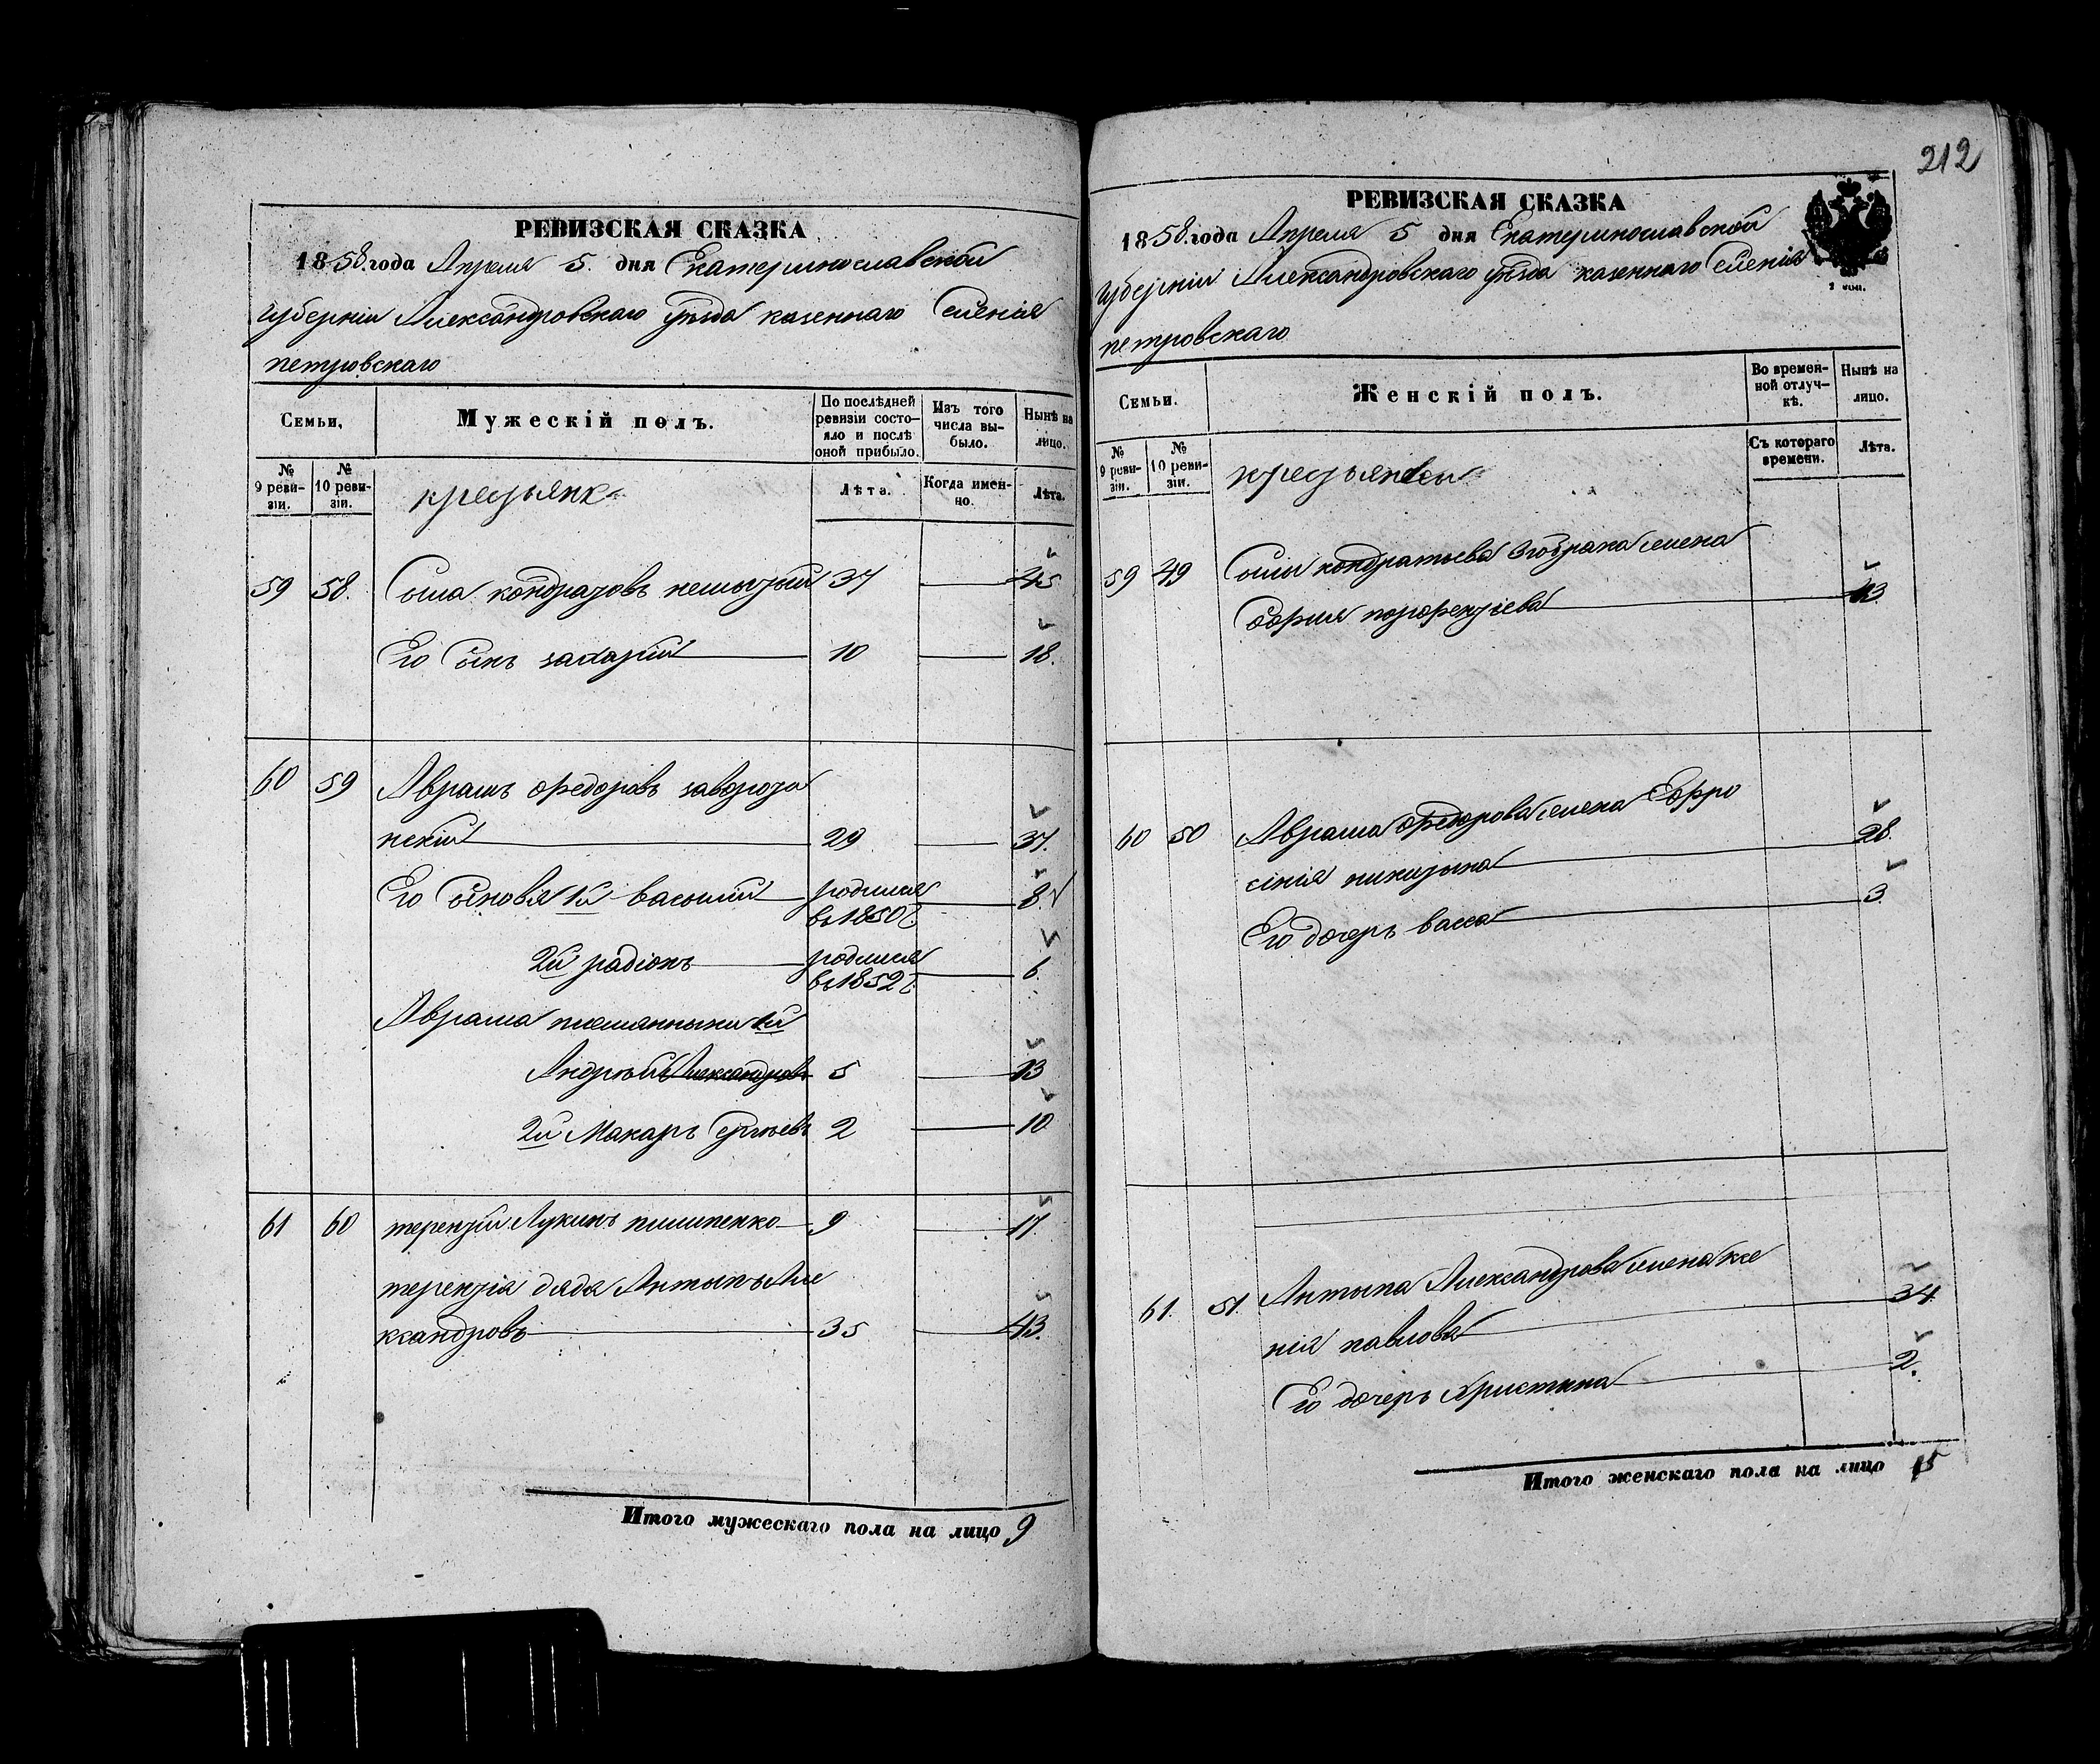 212
РЕВИЗСКАЯ СКАЗКА
1858 года Апреля 5. дня Екатеринославской
губерніи Александровскаго уѣзда казеннаго Селенія
петровскаго
Семьи.
Мужескій полъ.
По послѣдней ревизіи состояло и послѣ оной прибыло.
Изъ того числа выбыло.
Нынѣ на лицо.
№ 9 ревизіи.
№ 10 ревизіи.
крестьяне
Лѣта.
Когда именно.
Лѣта.
59 58. Сыла кондратовъ 37 45
Его Сынъ 10 18.
60 59 Аврамъ федоровъ заворот
нскій 29 37.
Его Сыновья 1й василій родился в 1850 г. 8.
2й радіонъ родился в 1852 г. 6.
Аврама племянники 1й
Андрѣй Александровъ 5 13
2й Макаръ Сергѣевъ 2 10
61 60 терентій Лукинъ пилипенко 9 17.
терентія дядя Антыпъ Але
ксандровъ 35 43.
Итого мужескаго пола на лицо 9
РЕВИЗСКАЯ СКАЗКА
1858 года Апреля 5 дня Екатеринославской
губерніи Александровскаго уѣзда казеннаго Селенія
петровскаго
Семьи.
Женскій полъ.
Во временной отлучкѣ.
Нынѣ на лицо.
№ 9 ревизіи.
№ 10 ревизіи.
крестьянки
Съ котораго времени.
Лѣта.
59 49 Сылы кондратьева втобрака жена
София порфентіева 43
60 50 Аврама федорова жена Ефро
сінія никитина 28.
Его дочерь васса 3.
61. 51. Антыпа Александрова жена ксе
нія павлова 34
Его дочерь Христина 2.
Итого женскаго пола на лицо 5